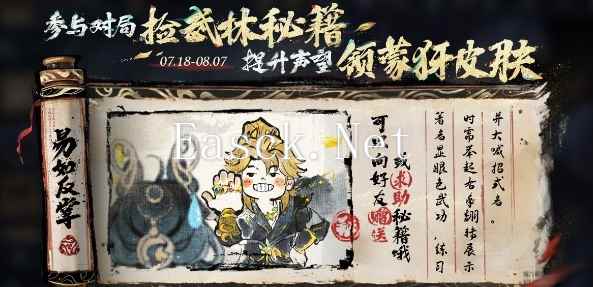 参与对局 捡武林秘籍
07.18-08.07 提升声望 领蒙犽皮肤
易如反掌
Easck.Net
可以向好友赠送
或求助秘籍哦
著名显眼包武功，练习
时需举起右手翻转展示
并大喊招式名。